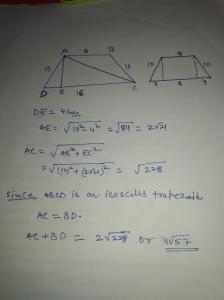 A 8 B
8
10 10
10 10
D E 16 C
4 8 4
DE = 4
AE = √10² - 4² = √84 = 2√21
AC = √AE² + EC²
= √(12)² + (2√21)² = √228
Since ABCD is an isoscelis trapezoid
AC = BD.
AC + BD = 2√228 or 4√57